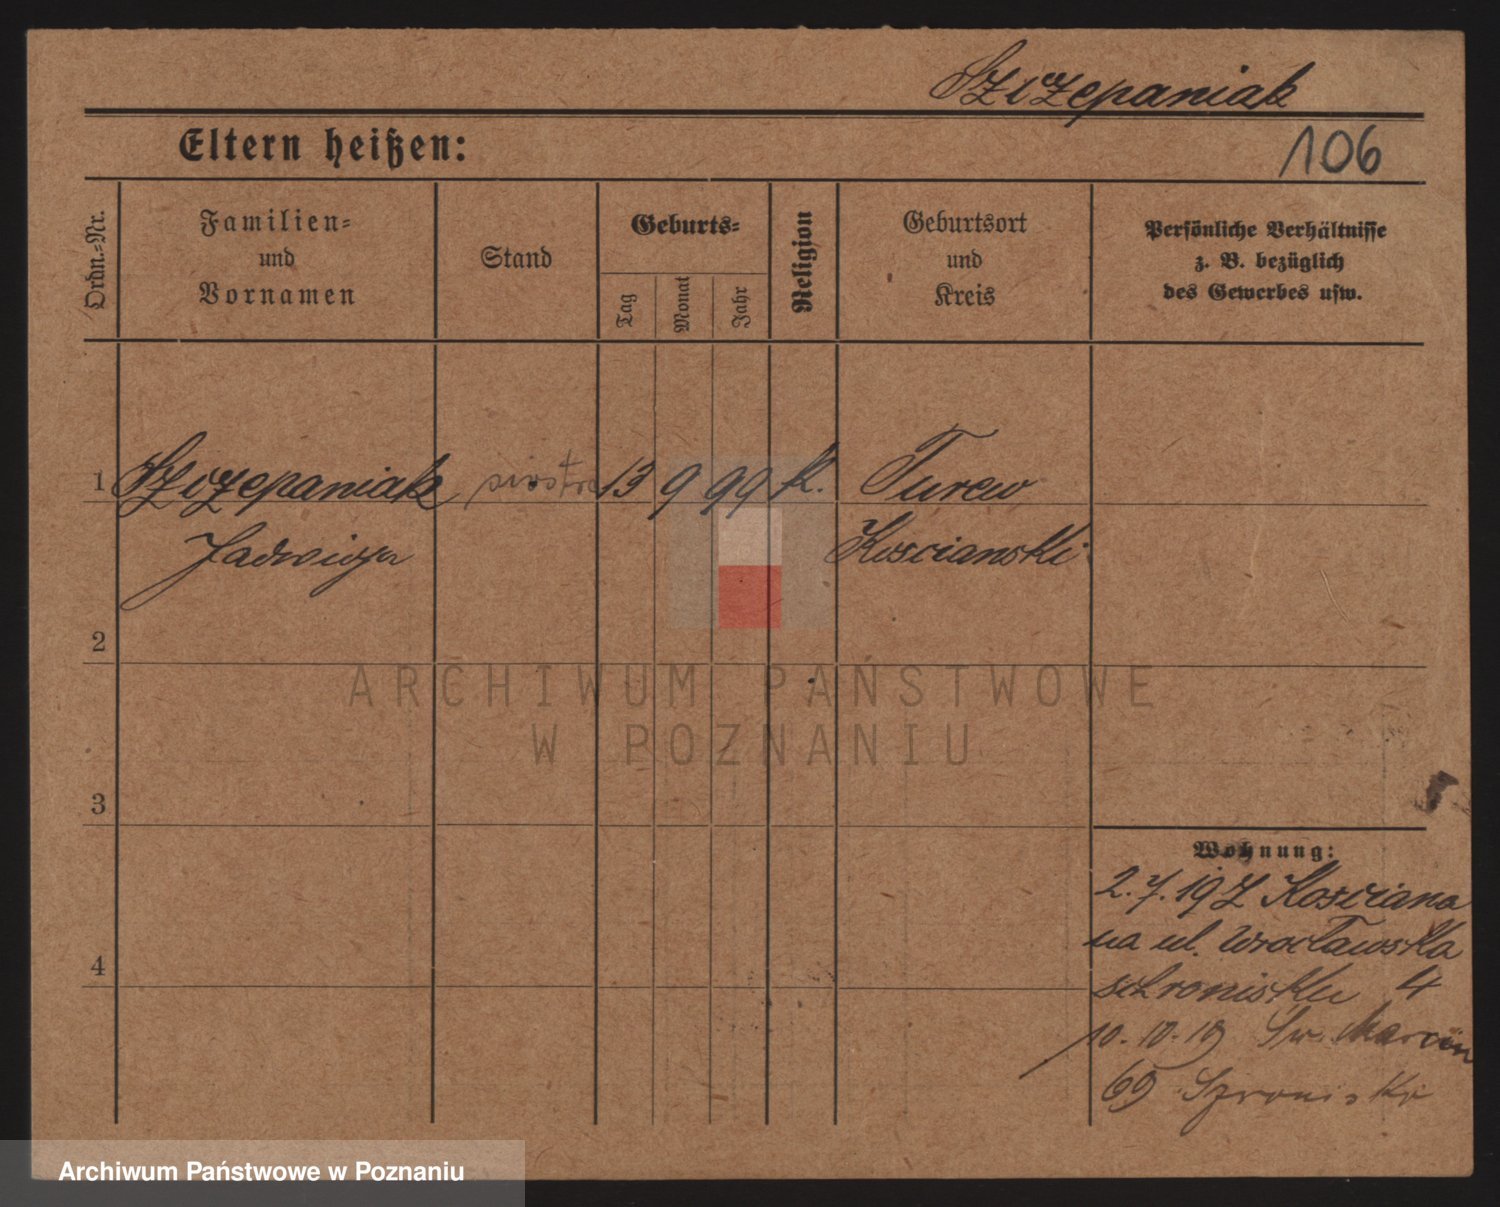 Szczepaniak
Eltern heißen:
106
Ordn.-Nr.
Familien-
und
Vornamen
Stand
Geburts-
Tag
Monat
Jahr
Religion
Geburtsort
und
Kreis
Persönliche Verhältnisse
z. B. bezüglich
des Gewerbes usw.
1
Szczepaniak siostra 13 9 99 k. Turew
Jadwiga Koscianski
2
ARCHIWUM PAŃSTWOWE
W POZNANIU
3
Wohnung:
2.7.19 Z Kościana
na ul. Wrocławska
4
schronisku 4
10.10.19 Św. Marcin
69
Archiwum Państwowe w Poznaniu